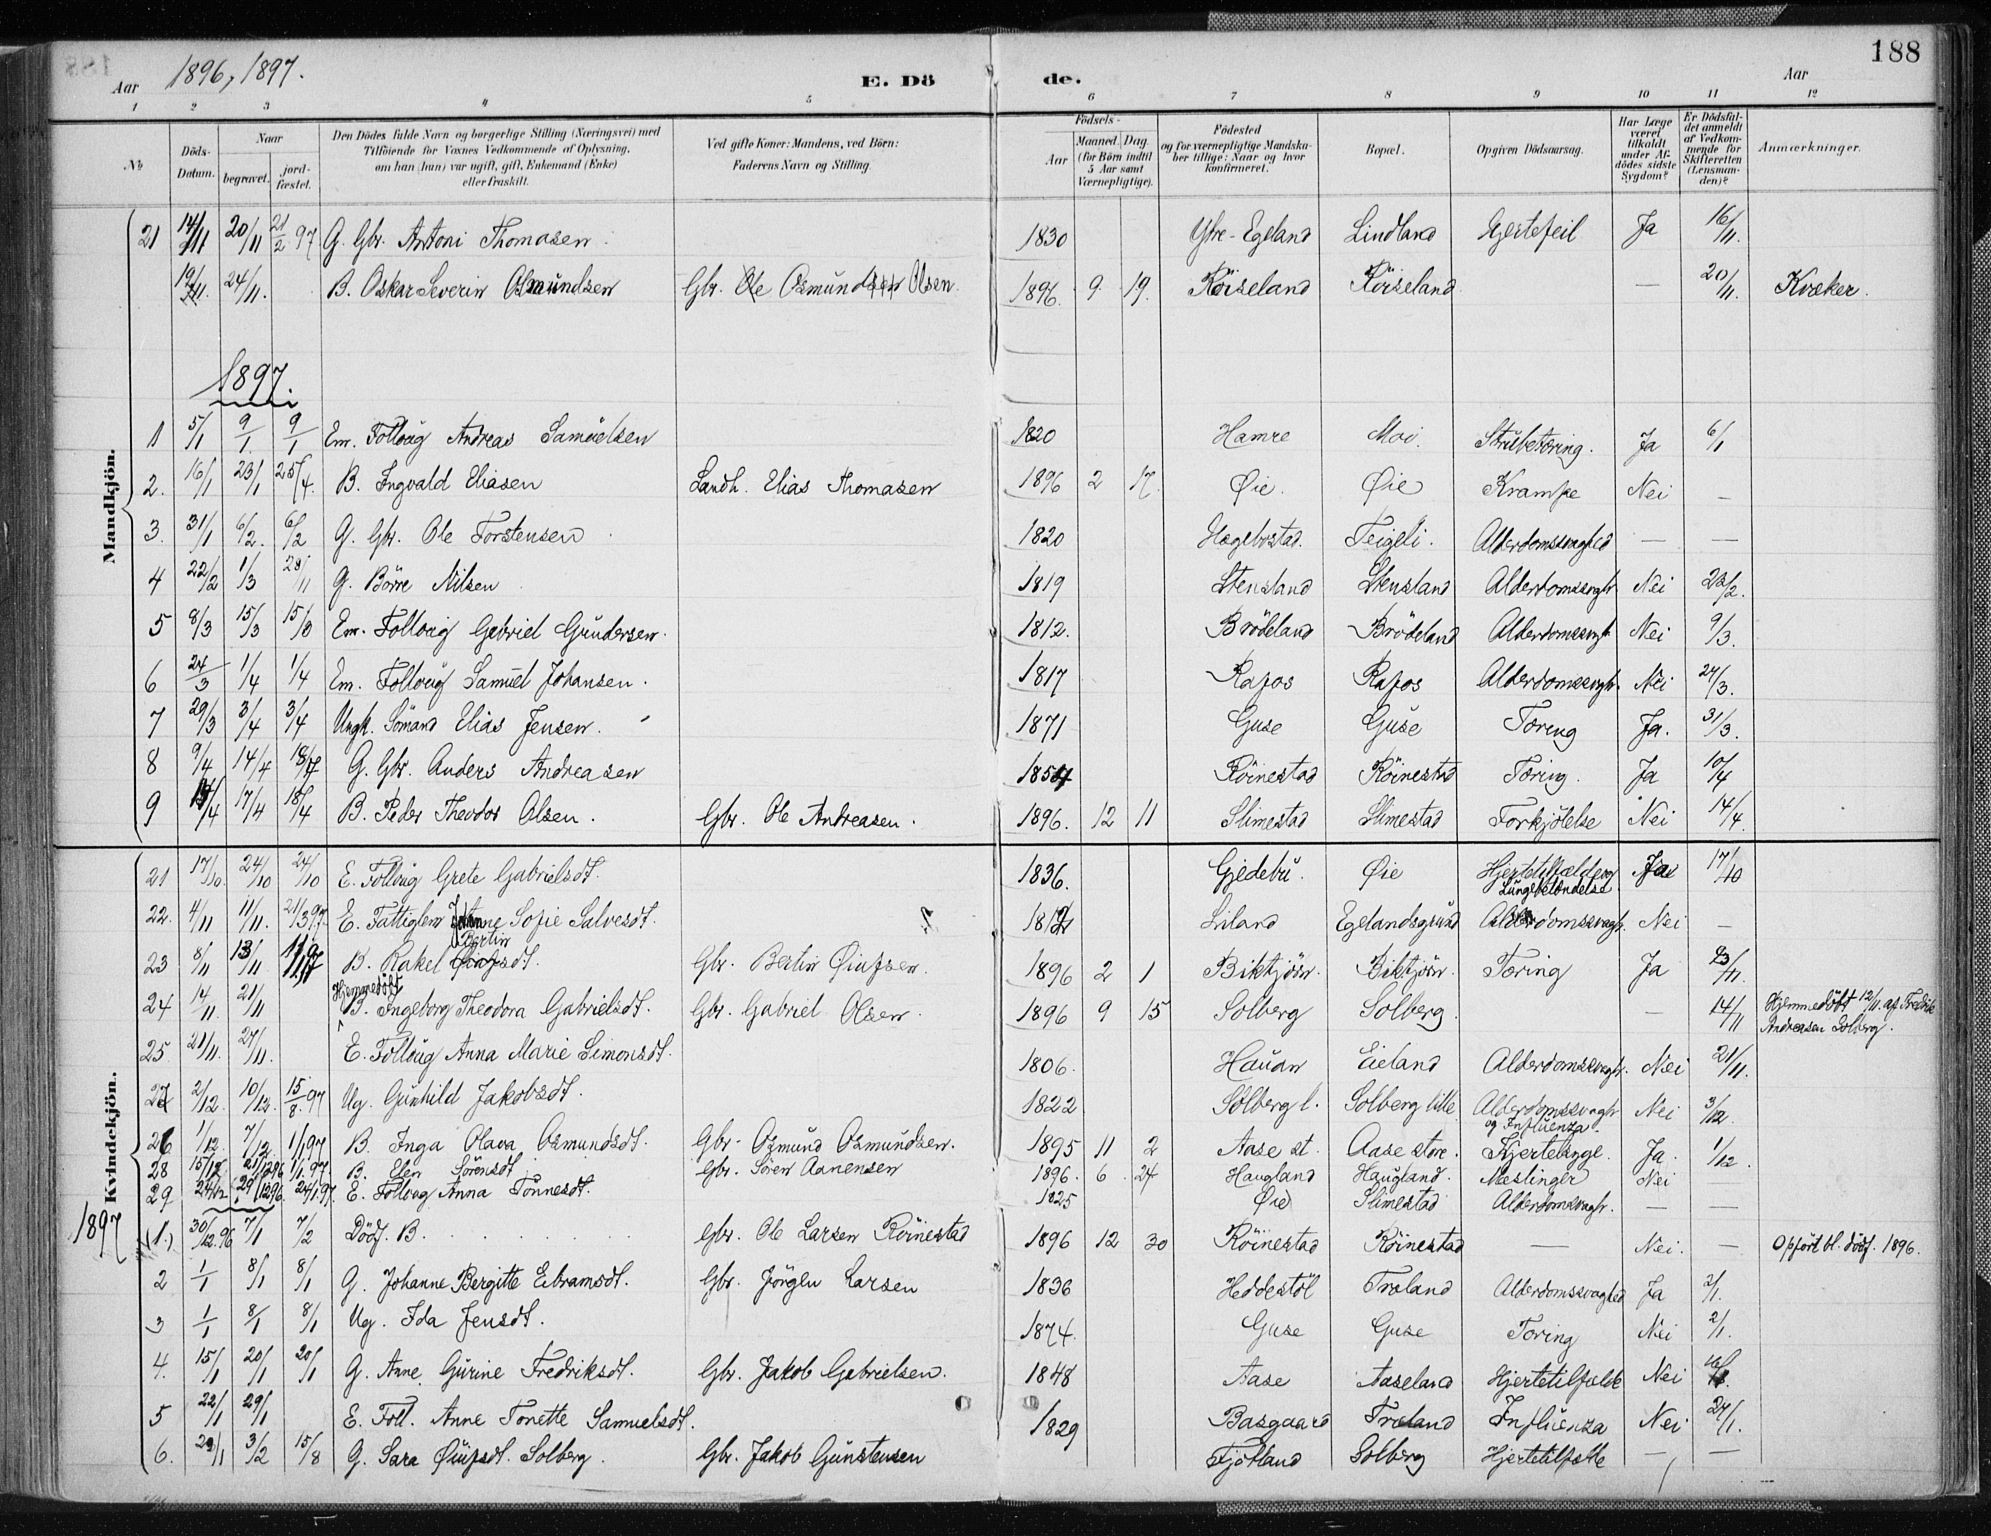 188
Aar 1896, 1897. E. Dö de. Aar
1 2 3 4 5 6 7 8 9 10 11 12
No Döds-Datum. Naar begravet. jordfæstet. Den Dödes fulde Navn og borgerlige Stilling (Næringsvei) med Tilföiende for Voxnes Vedkommende af Oplysning, om han (hun) var ugift, gift, Enkemand (Enke) eller fraskilt. Ved gifte Koner: Mandens, ved Börn: Faderens Navn og Stilling. Födsels- Aar Maaned. Dag. (for Börn indtil 5 Aar samt Værnepligtige). Födested og for værnepligtige Mandskaber tillige: Naar og hvor konfirmeret. Bopæl. Opgiven Dödsaarsag. Har Læge været tilkaldt under Afdödes sidste Sygdom? Er Dödsfaldet anmeldt af Vedkommende for Skifteretten (Lensmanden)? Anmærkninger.
Mandkjön.
21 14/11 20/11 21/2 97 G. Gbr. Antoni Thomasen 1830 Ytre-Egeland Lindland Hjertefeil Ja 16/11.
19/11. 24/11. B. Oskar Severin Osmundsen Gbr. Ole Osmundsen Olsen 1896 9 19. Röiseland Röiseland — 20/11. Kvæker.
1897.
1 5/1 9/1 9/1 Em. Folloug Andreas Samuelsen 1820 Hamre Moi Strubetæring. Ja 6/1
2. 16/1 23/1 25/4. B. Ingvald Eliasen Landh. Elias Thomasen 1896 2 17. Øie. Øie Krampe Nei —
3. 31/1 6/2. 6/2 G. Gbr. Ole Torstensen 1820 Hægebostad. Teigeli. Alderdomssvaghed — —
4 22/2 1/3 G. Börre Nilsen 1819 Stensland Stensland Alderdomssvagh. Nei 23/2.
5 8/3 15/3 15/8 Em. Folloug Gabriel Gundersen. 1812. Brödeland Brödeland Alderdomssvagh. Nei 9/3.
6 24/3 1/4 1/4 Em. Folloug Samuel Johansen. 1817 Rafos Rafos Alderdomssvagh. Nei 27/3.
7 29/3 3/4 3/4 Ungk. Sömand Elias Jensen. 1871 Guse Guse Tæring Ja. 31/3.
8 9/4 14/4 18/7 G. Gbr. Anders Andreasen 1854 Röinestad Röinestad Tæring. Ja 10/4
9 /4 17/4 18/4 B. Peder Theodor Olsen. Gbr. Ole Andreasen. 1896. 12 11 Slimestad Slimestad Forkjölelse Nei 14/4.
Kvindekjön.
21 17/10. 24/10 24/10 E. Folloug Grete Gabrielsdt. 1836. Gjedebu. Øie Hjertetilfælde og Lungebetændelse Ja 17/10
22. 4/11 11/11. 21/3 97. E. Fattiglem Anne Sofie Salvesdt. Liland Egelandsgrund Alderdomssvagh. Nei —
23 8/11 13/11 B. Rakel Bertin Øiufsdt. Gbr. Bertin Øiufsen. 1896 2 1 Birktjörn. Birktjörn. Tæring Ja 23/11.
24 14/11 21/11 Hjemmedöbt B. Ingeborg Theodora Gabrielsdt. Gbr. Gabriel Olsen. 1896 9 15 Solberg Solberg. — 14/11 Hjemmedöbt 12/11. af Fredrik Andreasen Solberg.
25. 21/11. 27/11. E. Folloug Anna Marie Simonsdt. 1806. Hauan Eieland Alderdomssvagh. Nei 21/11.
27 2/12. 10/12. 15/8. 97 Ug. Gunhild Jakobsdt. 1822 Solberg l. Solberg lille Alderdomssvagh. og Influenza. Nei 3/12.
26 1/12. 7/12 1/1 97 B. Inga Olava Osmundsdt. Gbr. Osmund Osmundsen. 1895 11 2 Aase st. Aase store. Hjertesyge. Ja. 1/12.
28 15/12 1/1. 97. B. Elen Sörensdt. Gbr. Sören Aanensen 1896. 6. 24 Haugland Haugland. Mæslinger Nei —
29 24/12 29/12 96. 24/1 97. E. Folloug Anna Tönnesdt. 1825 Øie Slimestad Alderdomssvagh. — —
1897
(1.) 30/12. 96 7/1 7/2 Dödf. B. Gbr. Ole Larsen Röinestad 1896 12 30 Röinestad Röinestad — Nei. — Opfört bl. dödf. 1896.
2 1/1 8/1 8/1 G. Johanne Bergitte Eibramsdt. Gbr. Jörgen Larsen 1836 Heddestöl Træland Alderdomssvaghed Ja 2/1.
3 1/1 8/1 8/1 Ug. Ida Jensdt. 1874. Guse Guse Tæring Nei 2/1.
4. 15/1 20/1 20/1 G. Anne Gurine Fredriksdt. Gbr. Jakob Gabrielsen. 1848 Aase Aaseland Hjertetilfælde Nei
5 22/1 29/1 E. Foll. Anne Tonette Samuelsdt. 1829 Basgaard Træland Influenza Nei 24/1.
6. 3/2 15/8 G. Sara Øiufsdt. Solberg. Gbr. Jakob Gunstensen Fjotland Solberg Hjertetilfælde — —